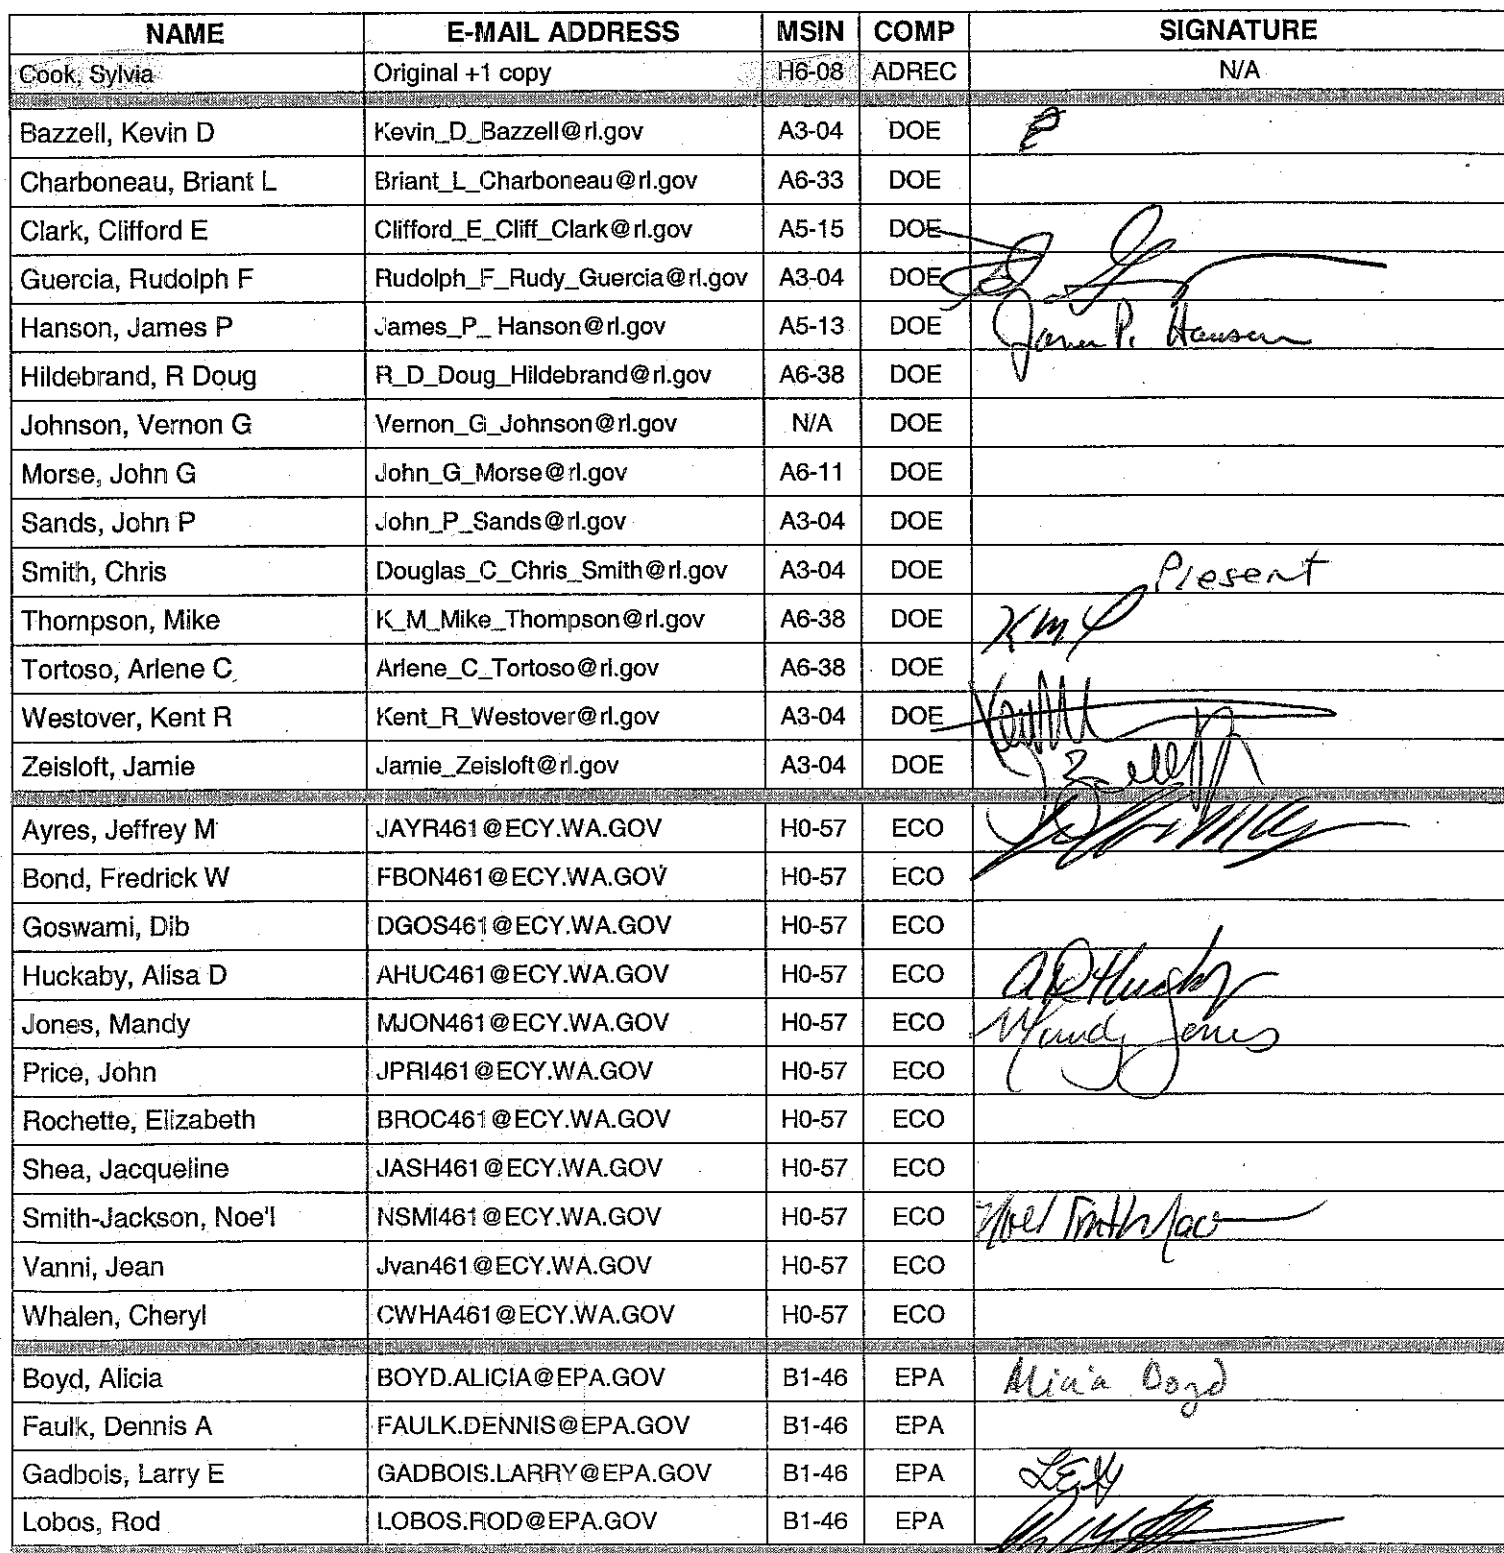 NAME E-MAIL ADDRESS MSIN COMP SIGNATURE
Cook, Sylvia Original +1 copy H6-08 ADREC N/A
Bazzell, Kevin D Kevin_D_Bazzell@rl.gov A3-04 DOE
Charboneau, Briant L Briant_L_Charboneau@rl.gov A6-33 DOE
Clark, Clifford E Clifford_E_Cliff_Clark@rl.gov A5-15 DOE
Guercia, Rudolph F Rudolph_F_Rudy_Guercia@rl.gov A3-04 DOE
Hanson, James P James_P_ Hanson@rl.gov A5-13 DOE James P. Hanson
Hildebrand, R Doug R_D_Doug_Hildebrand@rl.gov A6-38 DOE
Johnson, Vernon G Vernon_G_Johnson@rl.gov N/A DOE
Morse, John G John_G_Morse@rl.gov A6-11 DOE
Sands, John P John_P_Sands@rl.gov A3-04 DOE
Smith, Chris Douglas_C_Chris_Smith@rl.gov A3-04 DOE Present
Thompson, Mike K_M_Mike_Thompson@rl.gov A6-38 DOE KMT
Tortoso, Arlene C Arlene_C_Tortoso@rl.gov A6-38 DOE
Westover, Kent R Kent_R_Westover@rl.gov A3-04 DOE
Zeisloft, Jamie Jamie_Zeisloft@rl.gov A3-04 DOE
Ayres, Jeffrey M JAYR461@ECY.WA.GOV H0-57 ECO
Bond, Fredrick W FBON461@ECY.WA.GOV H0-57 ECO
Goswami, Dib DGOS461@ECY.WA.GOV H0-57 ECO
Huckaby, Alisa D AHUC461@ECY.WA.GOV H0-57 ECO AD Huckaby
Jones, Mandy MJON461@ECY.WA.GOV H0-57 ECO Mandy Jones
Price, John JPRI461@ECY.WA.GOV H0-57 ECO
Rochette, Elizabeth BROC461@ECY.WA.GOV H0-57 ECO
Shea, Jacqueline JASH461@ECY.WA.GOV H0-57 ECO
Smith-Jackson, Noe'l NSMI461@ECY.WA.GOV H0-57 ECO Noel Smith-Jac
Vanni, Jean Jvan461@ECY.WA.GOV H0-57 ECO
Whalen, Cheryl CWHA461@ECY.WA.GOV H0-57 ECO
Boyd, Alicia BOYD.ALICIA@EPA.GOV B1-46 EPA Alicia Boyd
Faulk, Dennis A FAULK.DENNIS@EPA.GOV B1-46 EPA
Gadbois, Larry E GADBOIS.LARRY@EPA.GOV B1-46 EPA LEG
Lobos, Rod LOBOS.ROD@EPA.GOV B1-46 EPA